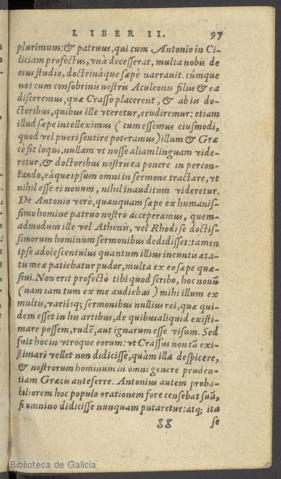 LIBER II. 97
plurimum: & patruus, qui cum Antonio in Ci-
liciam profectus, vnà decesserat, multa nobis de
eius studio, doctrináque sæpe narrauit. cúmque
nos cum consobrinis nostris Aculeonis filiis & ea
disceremus, quæ Crasso placerent, & ab iis do-
ctoribus, quibus ille vteretur, erudiremur: etiam
illud sæpe intelleximus (cum essemus eiusmodi,
quod vel pueri sentire poteramus) illum & Græ
cè sit loqui, nullam vt nosse aliam linguam vide-
retur, & doctoribus nostris ea ponere in percon-
tando, eáque ipsum omni in sermone tractare, vt
nihil esse ei nouum, nihil inauditum videretur.
De Antonio verò, quanquam sæpe ex humanis-
simo homine patruo nostro acceperamus, quem-
admodum ille vel Athenis, vel Rhodi se doctis-
simorum hominum sermonibus dedidisset: tamen
ipse adolescentulus quantum illius ineuntis æta-
tis meæ patiebatur pudor, multa ex eo sæpe quæ-
siui. Non erit profectò tibi quod scribo, hoc nouũ
(nam iam tum ex me audiebas) mihi illum ex
multis, variisq; sermonibus nullius rei, quæ qui-
dem esset in his artibus, de quibus aliquid existi-
mare possem, rudẽ, aut ignarum esse visum. Sed
fuit hoc in vtroque eorum: vt Crassus non tã exi-
stimari vellet non didicisse, quàm illa despicere,
& nostrorum hominum in omni genere pruden-
tiam Græcis anteferre. Antonius autem proba-
biliorem hoc populo orationem fore censebat suã,
si omnino didicisse nunquam putaretur: atq; ita
gg se
Biblioteca de Galicia